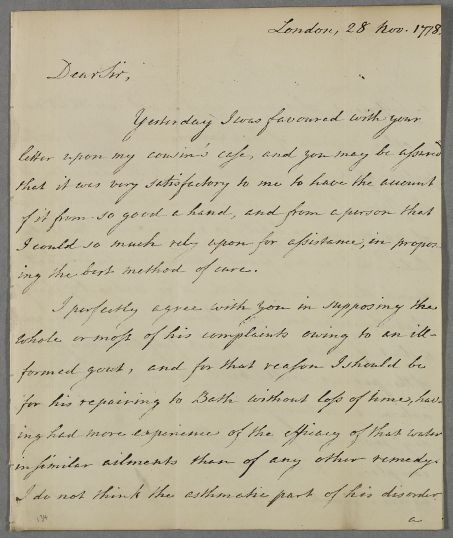 London, 28 Nov. 1778.
Dear Sir,
Yesterday I was favoured with your
letter upon my cousin's case, and you may be assured
that it was very satisfactory to me to have the account
of it from so good a hand, and from a person that
I could so much rely upon for assistance, in propos-
ing the best method of cure.
I perfectly agree with you in supposing the
whole or most of his complaints owing to an ill-
formed gout, and for that reason I should be
for his repairing to Bath without loss of time, hav-
ing had more experience of the efficacy of that water
in similar ailments than of any other remedy.
I do not think the asthmatic part of his disorder
a
134